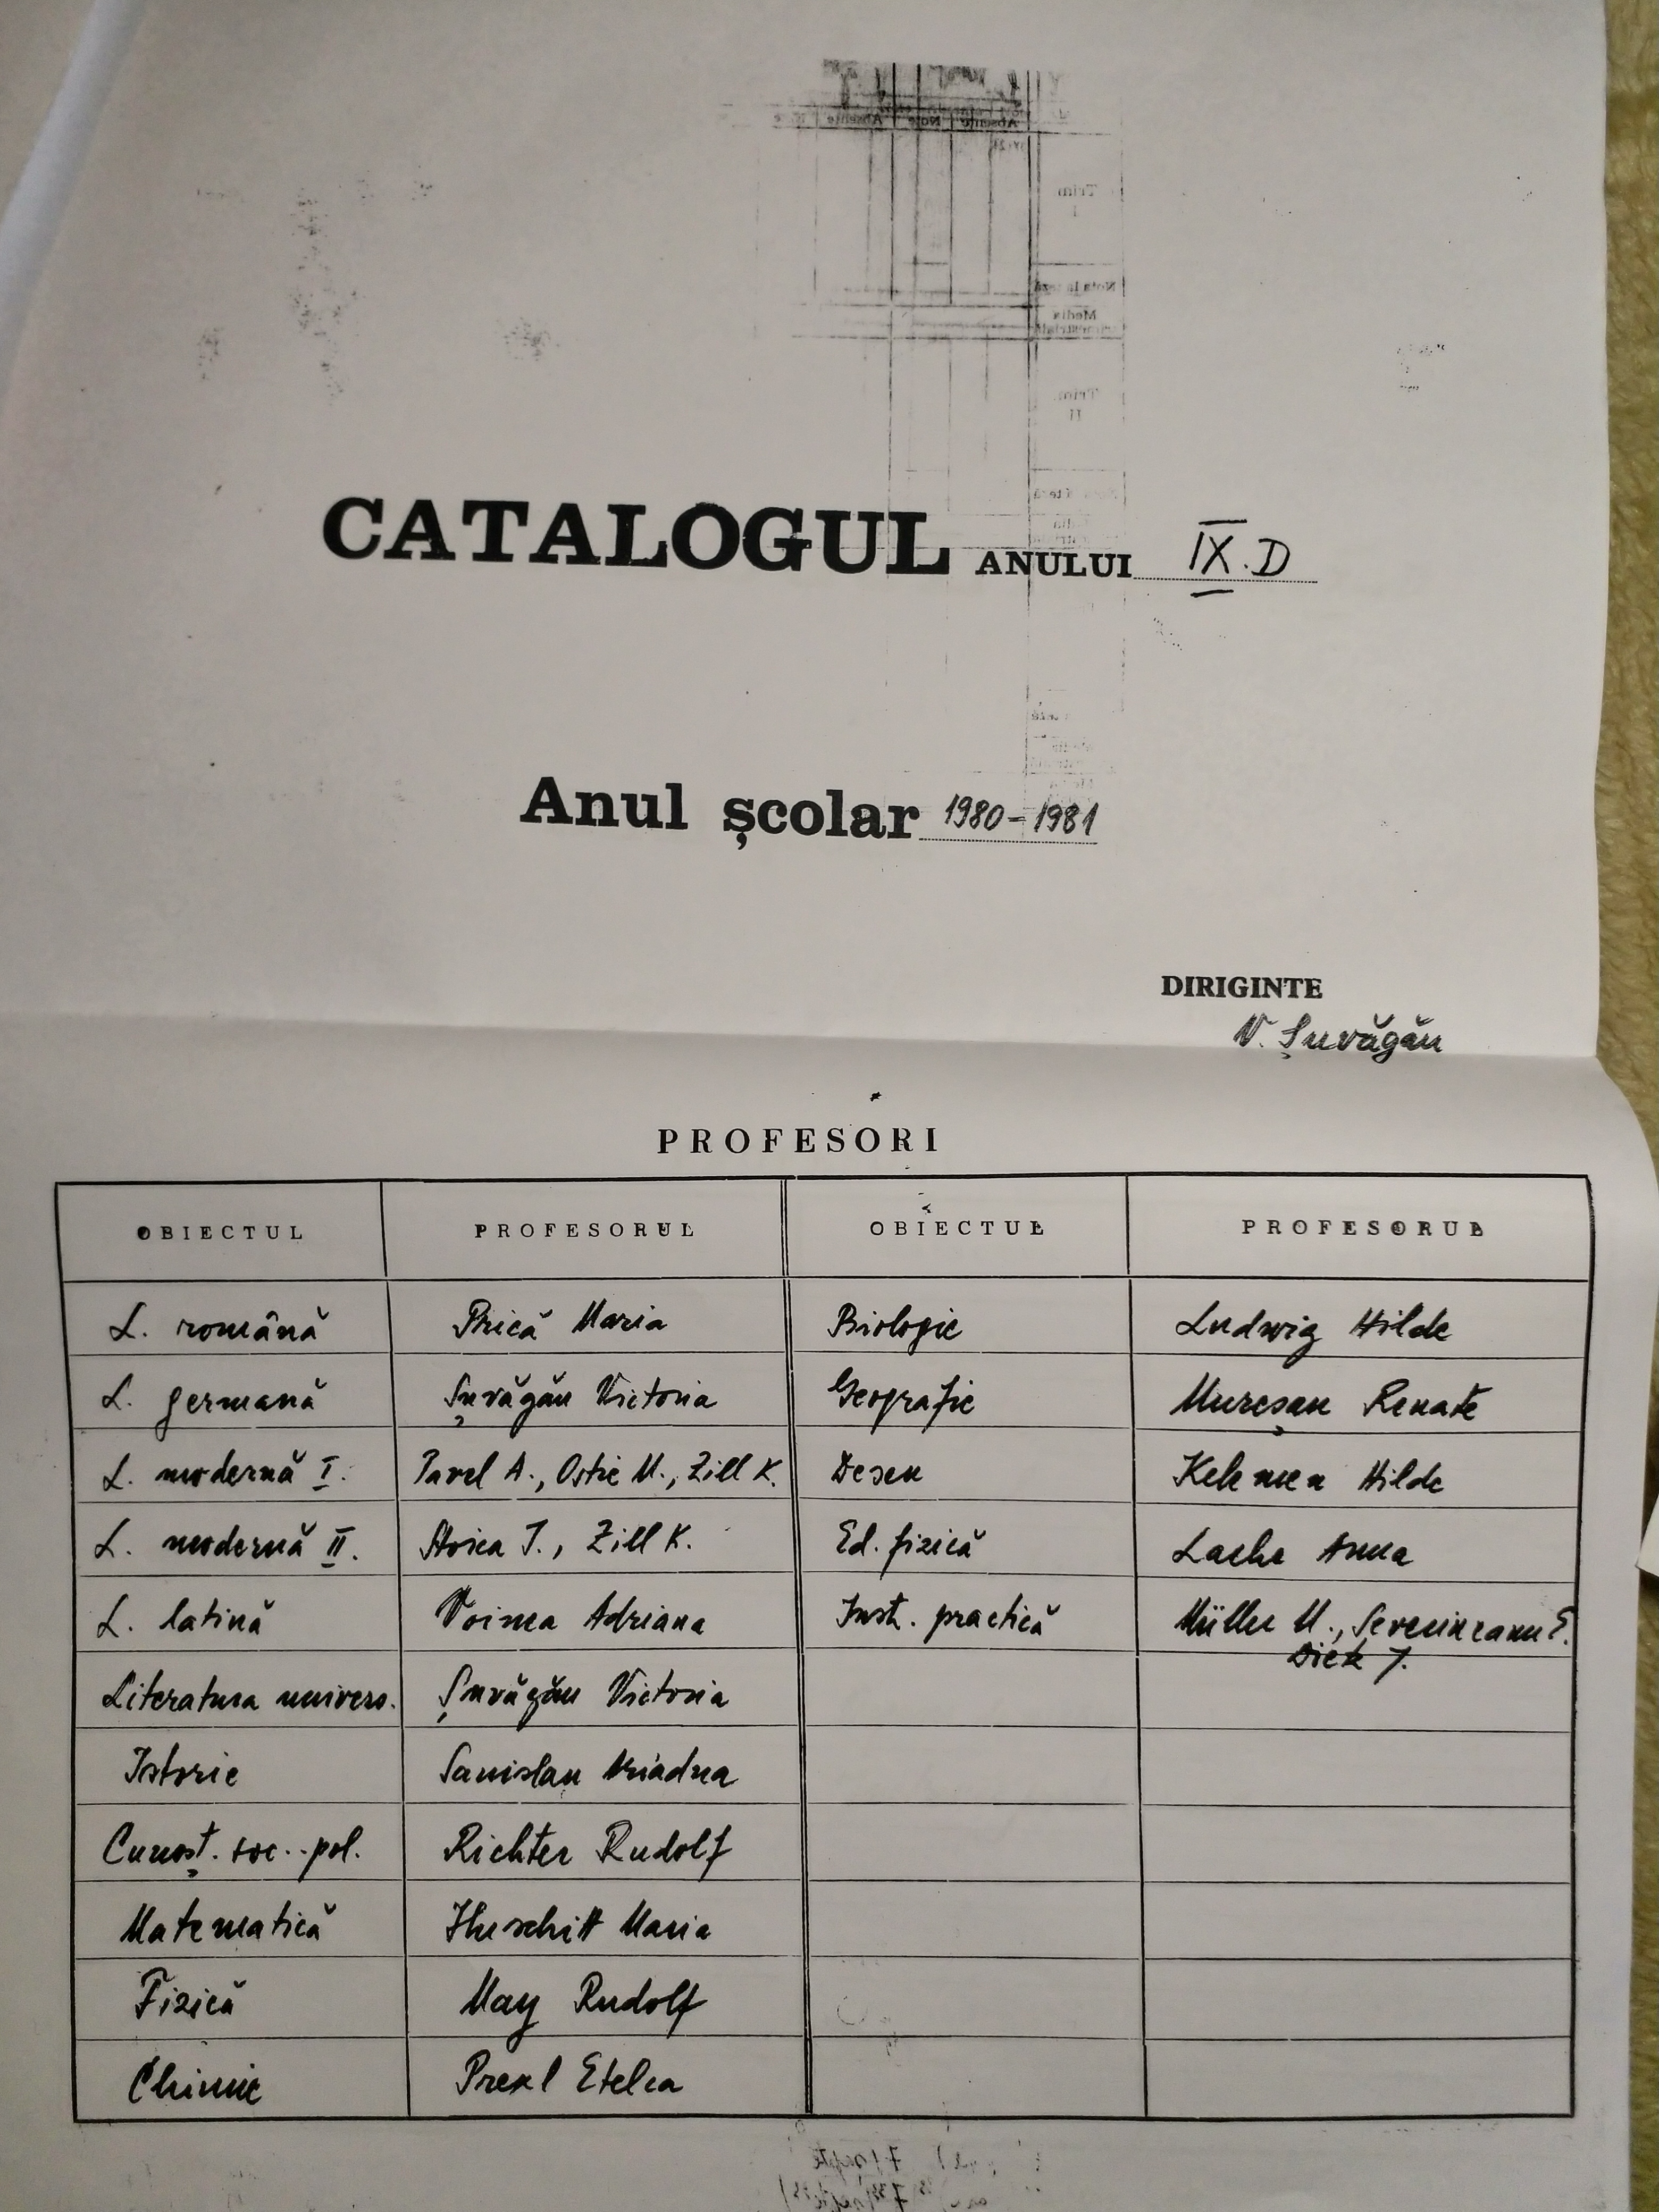 CATALOGUL ANULUI IX.D
Anul școlar 1980-1981
DIRIGINTE
V. Șuvăgău
PROFESORI
OBIECTUL PROFESORUL OBIECTUL PROFESORUL
L. română Prică Maria Biologie Ludwig Hilde
L. germană Șuvăgău Victoria Geografie Mureșan Renate
L. modernă I. Pavel A., Ostie M., Zill K. Desen Kelemen Hilde
L. modernă II. Stoica I., Zill K. Ed. fizică Lache Anna
L. latină Voinea Adriana Inst. practică Müller M., Severineanu E.
Diek J.
Literatura univers. Șuvăgău Victoria
Istorie Sanislau Ariadna
Cunoșt. soc.-pol. Richter Rudolf
Matematică Maria
Fizică May Rudolf
Chimie Prexl Etelca